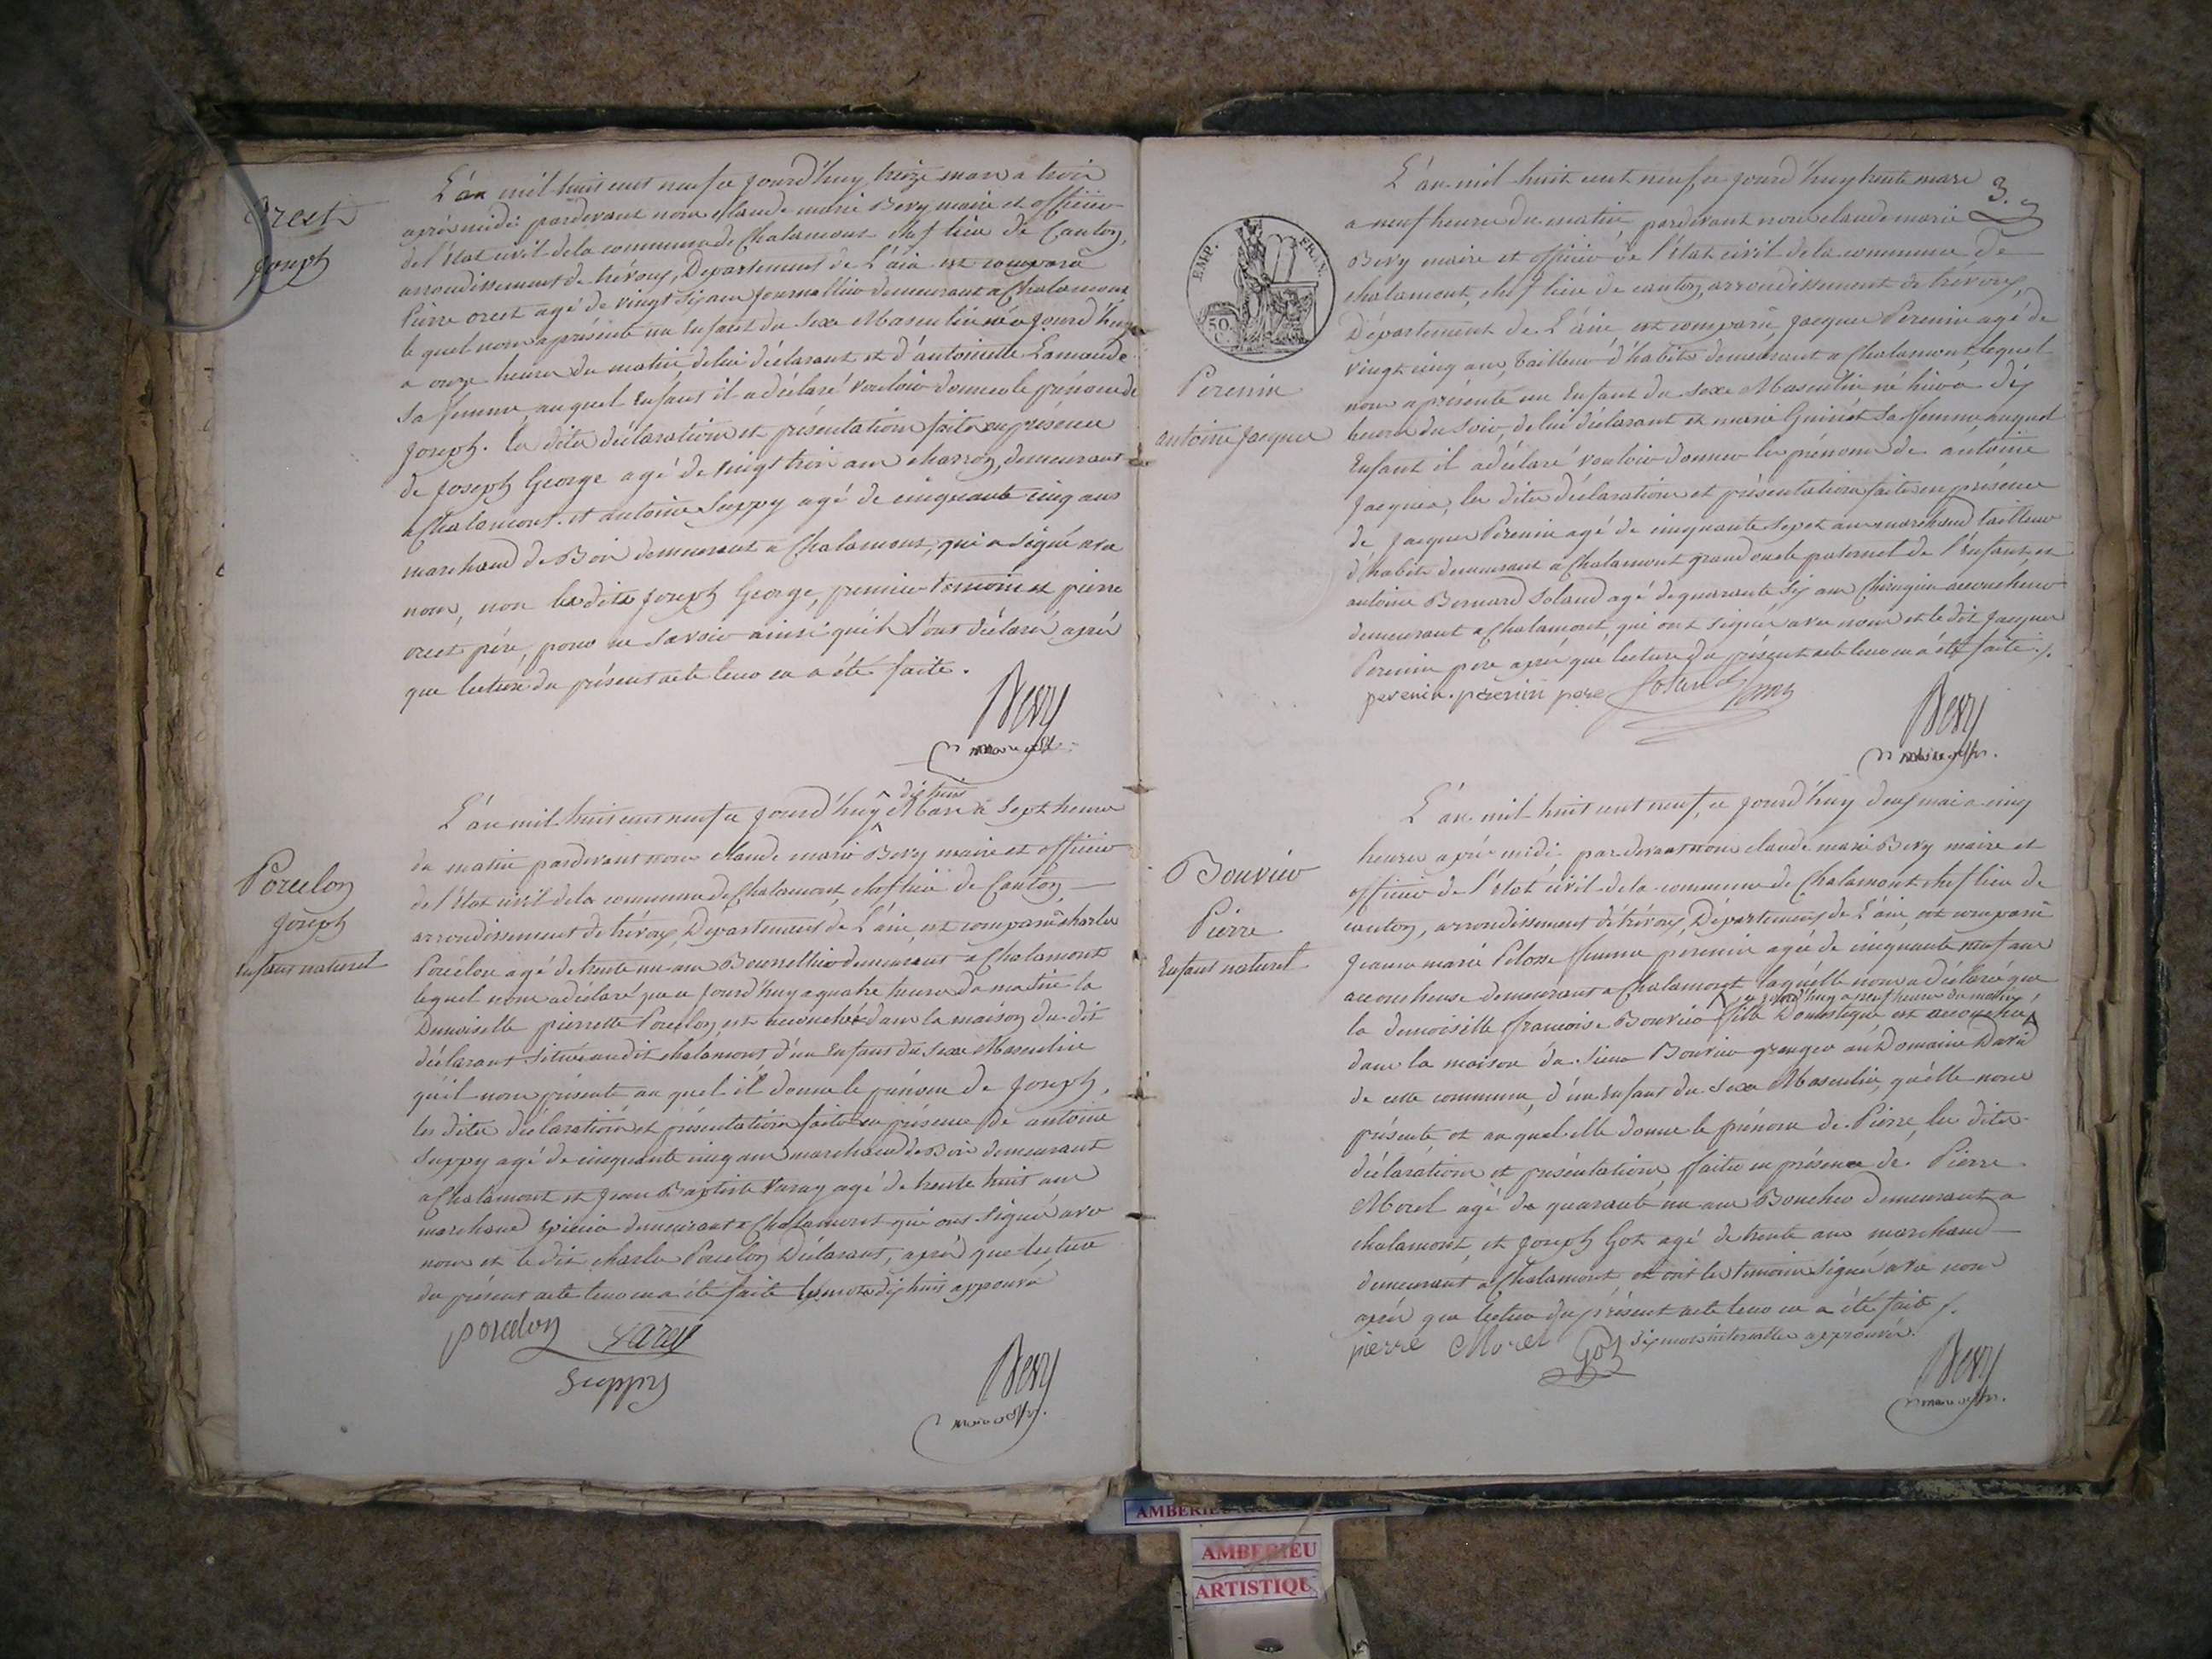 Orest
Joseph
L'an mil huit cent neuf ce jourd'huy treize mars a trois
après midi pardevant nous claude marie Bevy maire et officier
de l'état civil de la commune de Chalamont chef lieu de Canton,
arrondissement de trévoux, Département de L'ain est comparu
Pierre orest agé de vingt six ans Journallier demeurant a Chalamont
le quel nous a présenté un Enfant du Sexe Masculin né ce jourd'huy
a onze heures du matin de lui déclarant et d'antoinette Lamande
Sa femme, au quel Enfant il a déclaré vouloir donner le prénom de
Joseph. les dites déclaration et présentation faites en présence
de Joseph George agé de vingt trois ans charron, demeurant
a Chalamont. et antoine Suppy agé de cinquante cinq ans
marchand de Bois demeurant a Chalamont, qui a Signé avec
nous, non les dits Joseph George, premier temoin et pierre
orest père, pour ne Savoir ainsi qu'ils l'ont déclaré après
que lecture du présent acte leur en a été faite.
Bevy
maire et off.
Porcelon
Joseph
Enfant naturel
dix huit
L'an mil huit cent neuf ce jourd'huy Mars a Sept heures
du matin pardevant nous claude marie Bevy maire et officier
de l'état civil de la commune de Chalamont, chef lieu de Canton,
arrondissement de trévoux, Département de L'ain, est comparu charles
Porcelon agé de trente un ans Bourrellier demeurant a Chalamont
lequel nous a déclaré que ce jourd'huy a quatre heures du matin la
Demoiselle pierrette Porcelon est accouchée dans la maison du dit
déclarant Située au dit chalamont d'un Enfant du Sexe Masculin
qu'il nous présente au quel il donne le prénom de Joseph,
les dites déclaration et présentation faites en présence de antoine
Suppy agé de cinquante cinq ans marchand de Bois demeurant
a Chalamont et Jean Baptiste Varay agé de trente huit ans
marchand épicier demeurant a Chalamont qui ont Signé avec
nous et le dit charles Porcelon Déclarant, après que lecture
du présent acte leur en a été faite les mots dix huit approuvé
porcelon Varay
Suppy
Bevy
maire et off.
3.
EMP. FRAN.
50 C.
Perenin
antoine Jacques
L'an mil huit cent neuf, ce jourd'huy trente mars
a neuf heures du matin, pardevant nous claude marie
Bevy maire et officier de l'état civil de la commune de
chalamont, chef lieu de canton, arrondissement de trevoux,
Département de L'ain est comparu Jacques Perenin agé de
vingt cinq ans, Tailleur d'habits demeurant a Chalamont, lequel
nous a présenté un Enfant du Sexe Masculin né hier a dix
heures du Soir, de lui déclarant et marie Guinet Sa femme, auquel
Enfant il a déclaré vouloir donner les prénoms de antoine
Jacques, les dites déclaration et présentation faites en présence
de Jacques Perenin agé de cinquante Sept ans marchand tailleur
d'habits demeurant a Chalamont grand oncle paternel de l'Enfant et
antoine Bernard Soland agé de quarante Six ans Chirurgien accoucheur
demeurant a Chalamont, qui ont Signés avec nous et le dit Jacques
Perenin pere après que lecture du présent acte leur en a été faite ./.
perenin. perenin pere Soland
Bevy
maire et off.
Bouvier
Pierre
Enfant naturel
L'an mil huit cent neuf, ce jourd'huy deux mai a cinq
heures après midi pardevant nous claude marie Bevy maire et
officier de l'état civil de la commune de Chalamont chef lieu de
canton, arrondissement de trévoux, Département de L'ain, est comparu
Jeanne marie Pelosse femme perenin agée de cinquante neuf ans
accoucheuse demeurant a Chalamont laquelle nous a déclaré que
ce jourd'huy a neuf heures du matin
la demoiselle francoise Bouvier fille Domestique est accouchée
dans la maison du Sieur Bouvier granger au Domaine David
de cette commune, d'un Enfant du Sexe Masculin, qu'elle nous
présente et auquel elle donne le prénom de Pierre, les dites
déclaration et présentation, faites en présence de Pierre
Morel agé de quarante un ans Boucher demeurant a
chalamont, et Joseph Got agé de trente ans marchand
demeurant a Chalamont et ont les temoins Signé avec nous
après que lecture du présent acte leur en a été faite ./.
pierre Morel Got Six mots interlignes approuvés.
Bevy
maire et off.
AMBERIEU
AMBERIEU
ARTISTIQUE